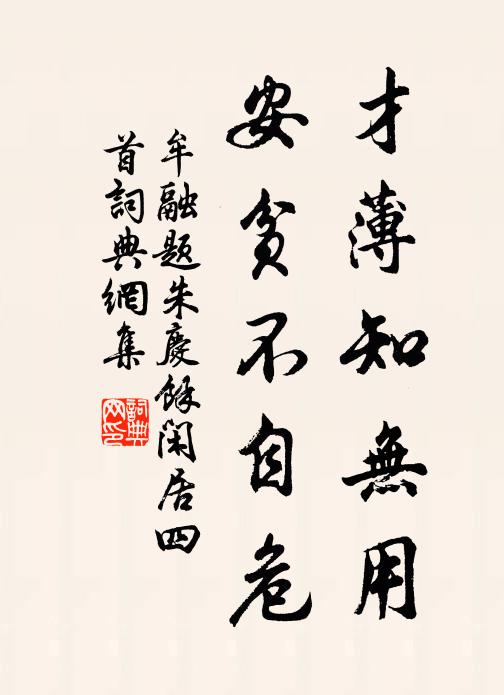 才薄知無用
安貧不自危
牟融題朱慶餘閑居四
首詞典網集
詞典
网印